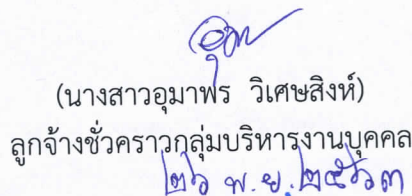 (นางสาวอุมาพร วิเศษสิงห์)
ลูกจ้างชั่วคราวกลุ่มบริหารงานบุคคล
๒๖ พ.ย. ๒๕๖๓